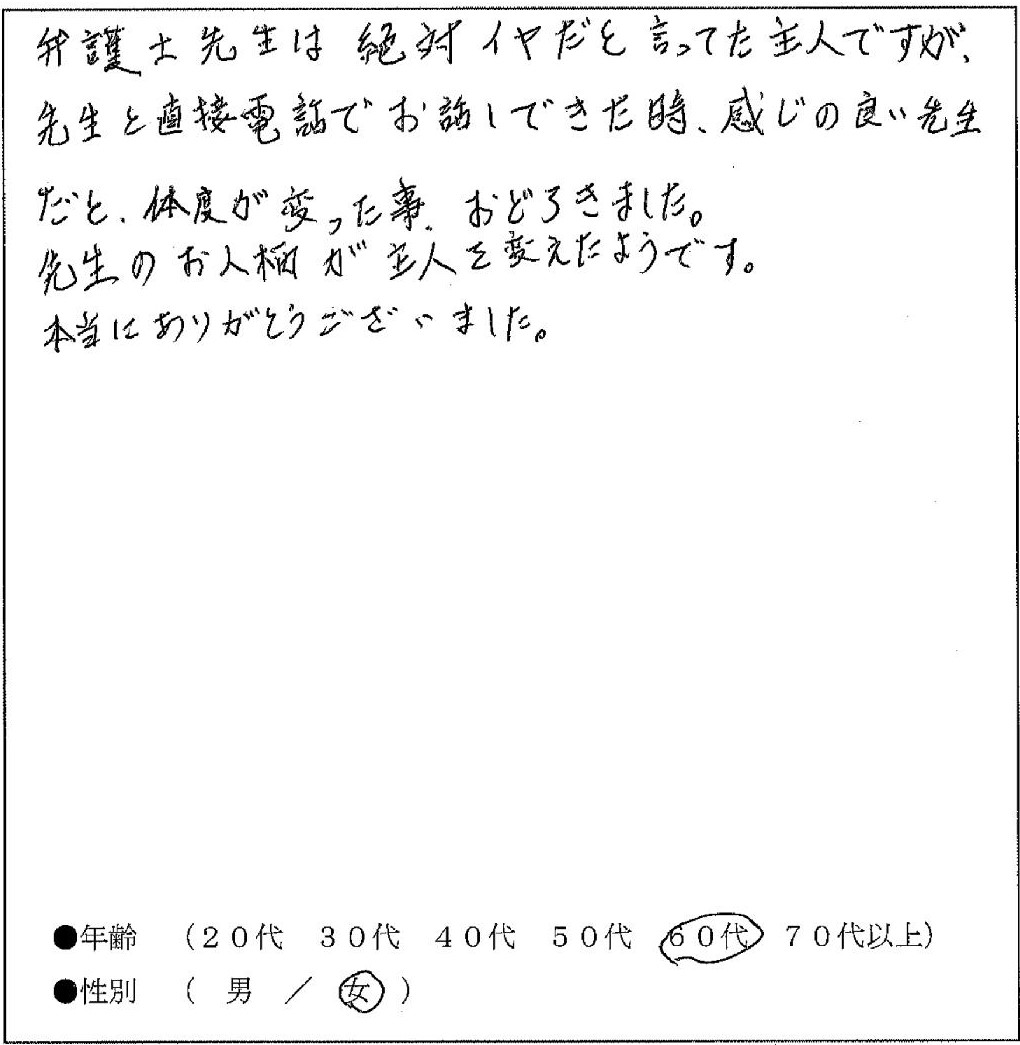 弁護士先生は絶対イヤだと言ってた主人ですが、
先生と直接電話でお話しできた時、感じの良い先生
だと、体度が変った事、おどろきました。
先生のお人柄が主人を変えたようです。
本当にありがとうございました。
●年齢　（２０代　３０代　４０代　５０代　６０代　７０代以上）
●性別　（　男　／　女　）